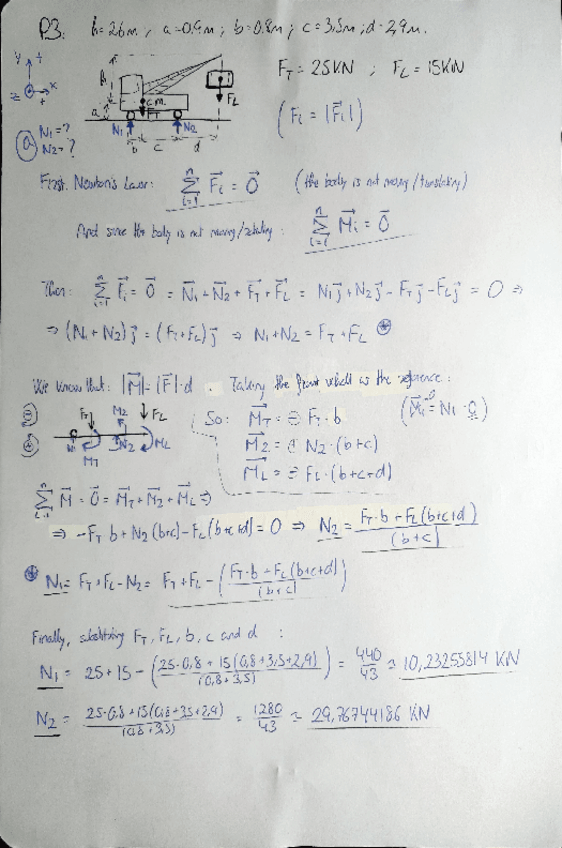 P3: h=2.6m, a=0.9m; b=0.8m; c=3,5m; d=2,9m.
y
x
z
h
a
c.m.
FT
FL
N1
N2
b c d
FT = 25KN ; FL = 15KN
(FL = |F⃗L|)
a) N1=?
N2=?
First Newton's Law: ∑ⁿᵢ₌₁ F⃗i = 0⃗ (the body is not moving/translating)
And since the body is not moving/rotating: ∑ⁿᵢ₌₁ M⃗i = 0⃗
Then: ∑ⁿᵢ₌₁ F⃗i = 0⃗ = N⃗1 + N⃗2 + F⃗T + F⃗L = N1 j⃗ + N2 j⃗ - FT j⃗ - FL j⃗ = 0 ⇒
⇒ (N1 + N2) j⃗ = (FT + FL) j⃗ ⇒ N1 + N2 = FT + FL ⊛
We know that: |M⃗| = |F⃗|·d. Taking the front wheel as the reference:
⊖
⊕
FT M2 FL
N1 N2 ML
MT
So: M⃗T = ⊖ FT · b (M⃗1 = N1 · 0)
M⃗2 = ⊕ N2 · (b+c)
M⃗L = ⊖ FL · (b+c+d)
∑ⁿᵢ₌₁ M⃗ = 0⃗ = M⃗T + M⃗2 + M⃗L ⇒
⇒ -FT·b + N2 (b+c) - FL (b+c+d) = 0 ⇒ N2 = (FT·b + FL(b+c+d))/(b+c)
⊛ N1 = FT + FL - N2 = FT + FL - ((FT·b + FL(b+c+d))/(b+c))
Finally, substituting FT, FL, b, c and d :
N1 = 25 + 15 - ((25·0,8 + 15(0,8+3,5+2,9))/(0,8+3,5)) = 440/43 ≈ 10,23255814 KN
N2 = (25·0,8 + 15(0,8+3,5+2,9))/(0,8+3,5) = 1280/43 ≈ 29,76744186 KN